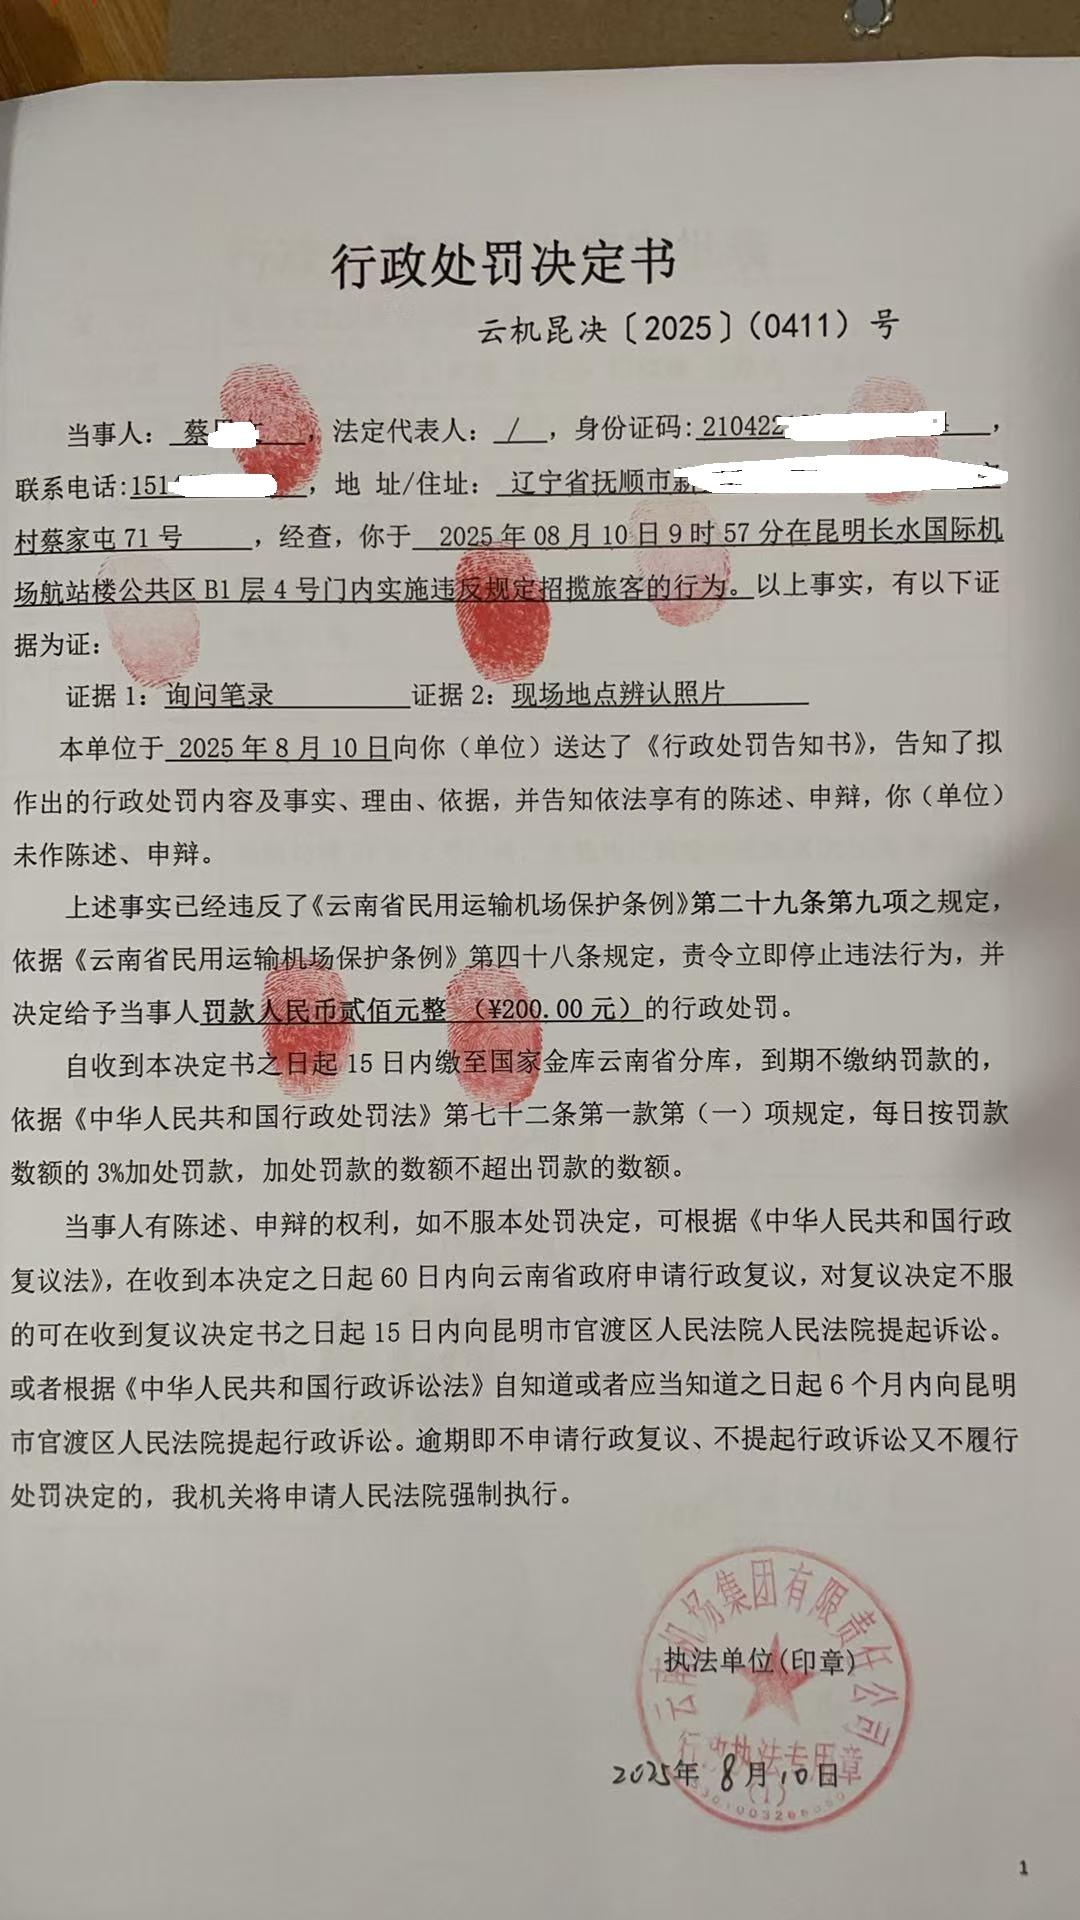 行政处罚决定书
云机昆决〔2025〕(0411)号
当事人：蔡，法定代表人：/，身份证码:210422，
联系电话:151，地 址/住址：辽宁省抚顺市新
村蔡家屯71号，经查，你于 2025年08月10日9时57分在昆明长水国际机
场航站楼公共区B1层4号门内实施违反规定招揽旅客的行为。以上事实，有以下证
据为证：
证据1：询问笔录 证据2：现场地点辨认照片
本单位于 2025年8月10日向你（单位）送达了《行政处罚告知书》，告知了拟
作出的行政处罚内容及事实、理由、依据，并告知依法享有的陈述、申辩，你（单位）
未作陈述、申辩。
上述事实已经违反了《云南省民用运输机场保护条例》第二十九条第九项之规定，
依据《云南省民用运输机场保护条例》第四十八条规定，责令立即停止违法行为，并
决定给予当事人罚款人民币贰佰元整（¥200.00元）的行政处罚。
自收到本决定书之日起15日内缴至国家金库云南省分库，到期不缴纳罚款的，
依据《中华人民共和国行政处罚法》第七十二条第一款第（一）项规定，每日按罚款
数额的3%加处罚款，加处罚款的数额不超出罚款的数额。
当事人有陈述、申辩的权利，如不服本处罚决定，可根据《中华人民共和国行政
复议法》，在收到本决定之日起60日内向云南省政府申请行政复议，对复议决定不服
的可在收到复议决定书之日起15日内向昆明市官渡区人民法院人民法院提起诉讼。
或者根据《中华人民共和国行政诉讼法》自知道或者应当知道之日起6个月内向昆明
市官渡区人民法院提起行政诉讼。逾期即不申请行政复议、不提起行政诉讼又不履行
处罚决定的，我机关将申请人民法院强制执行。
云南机场集团有限责任公司
执法单位(印章)
行政执法专用章
2025年8月10日
(1)
1